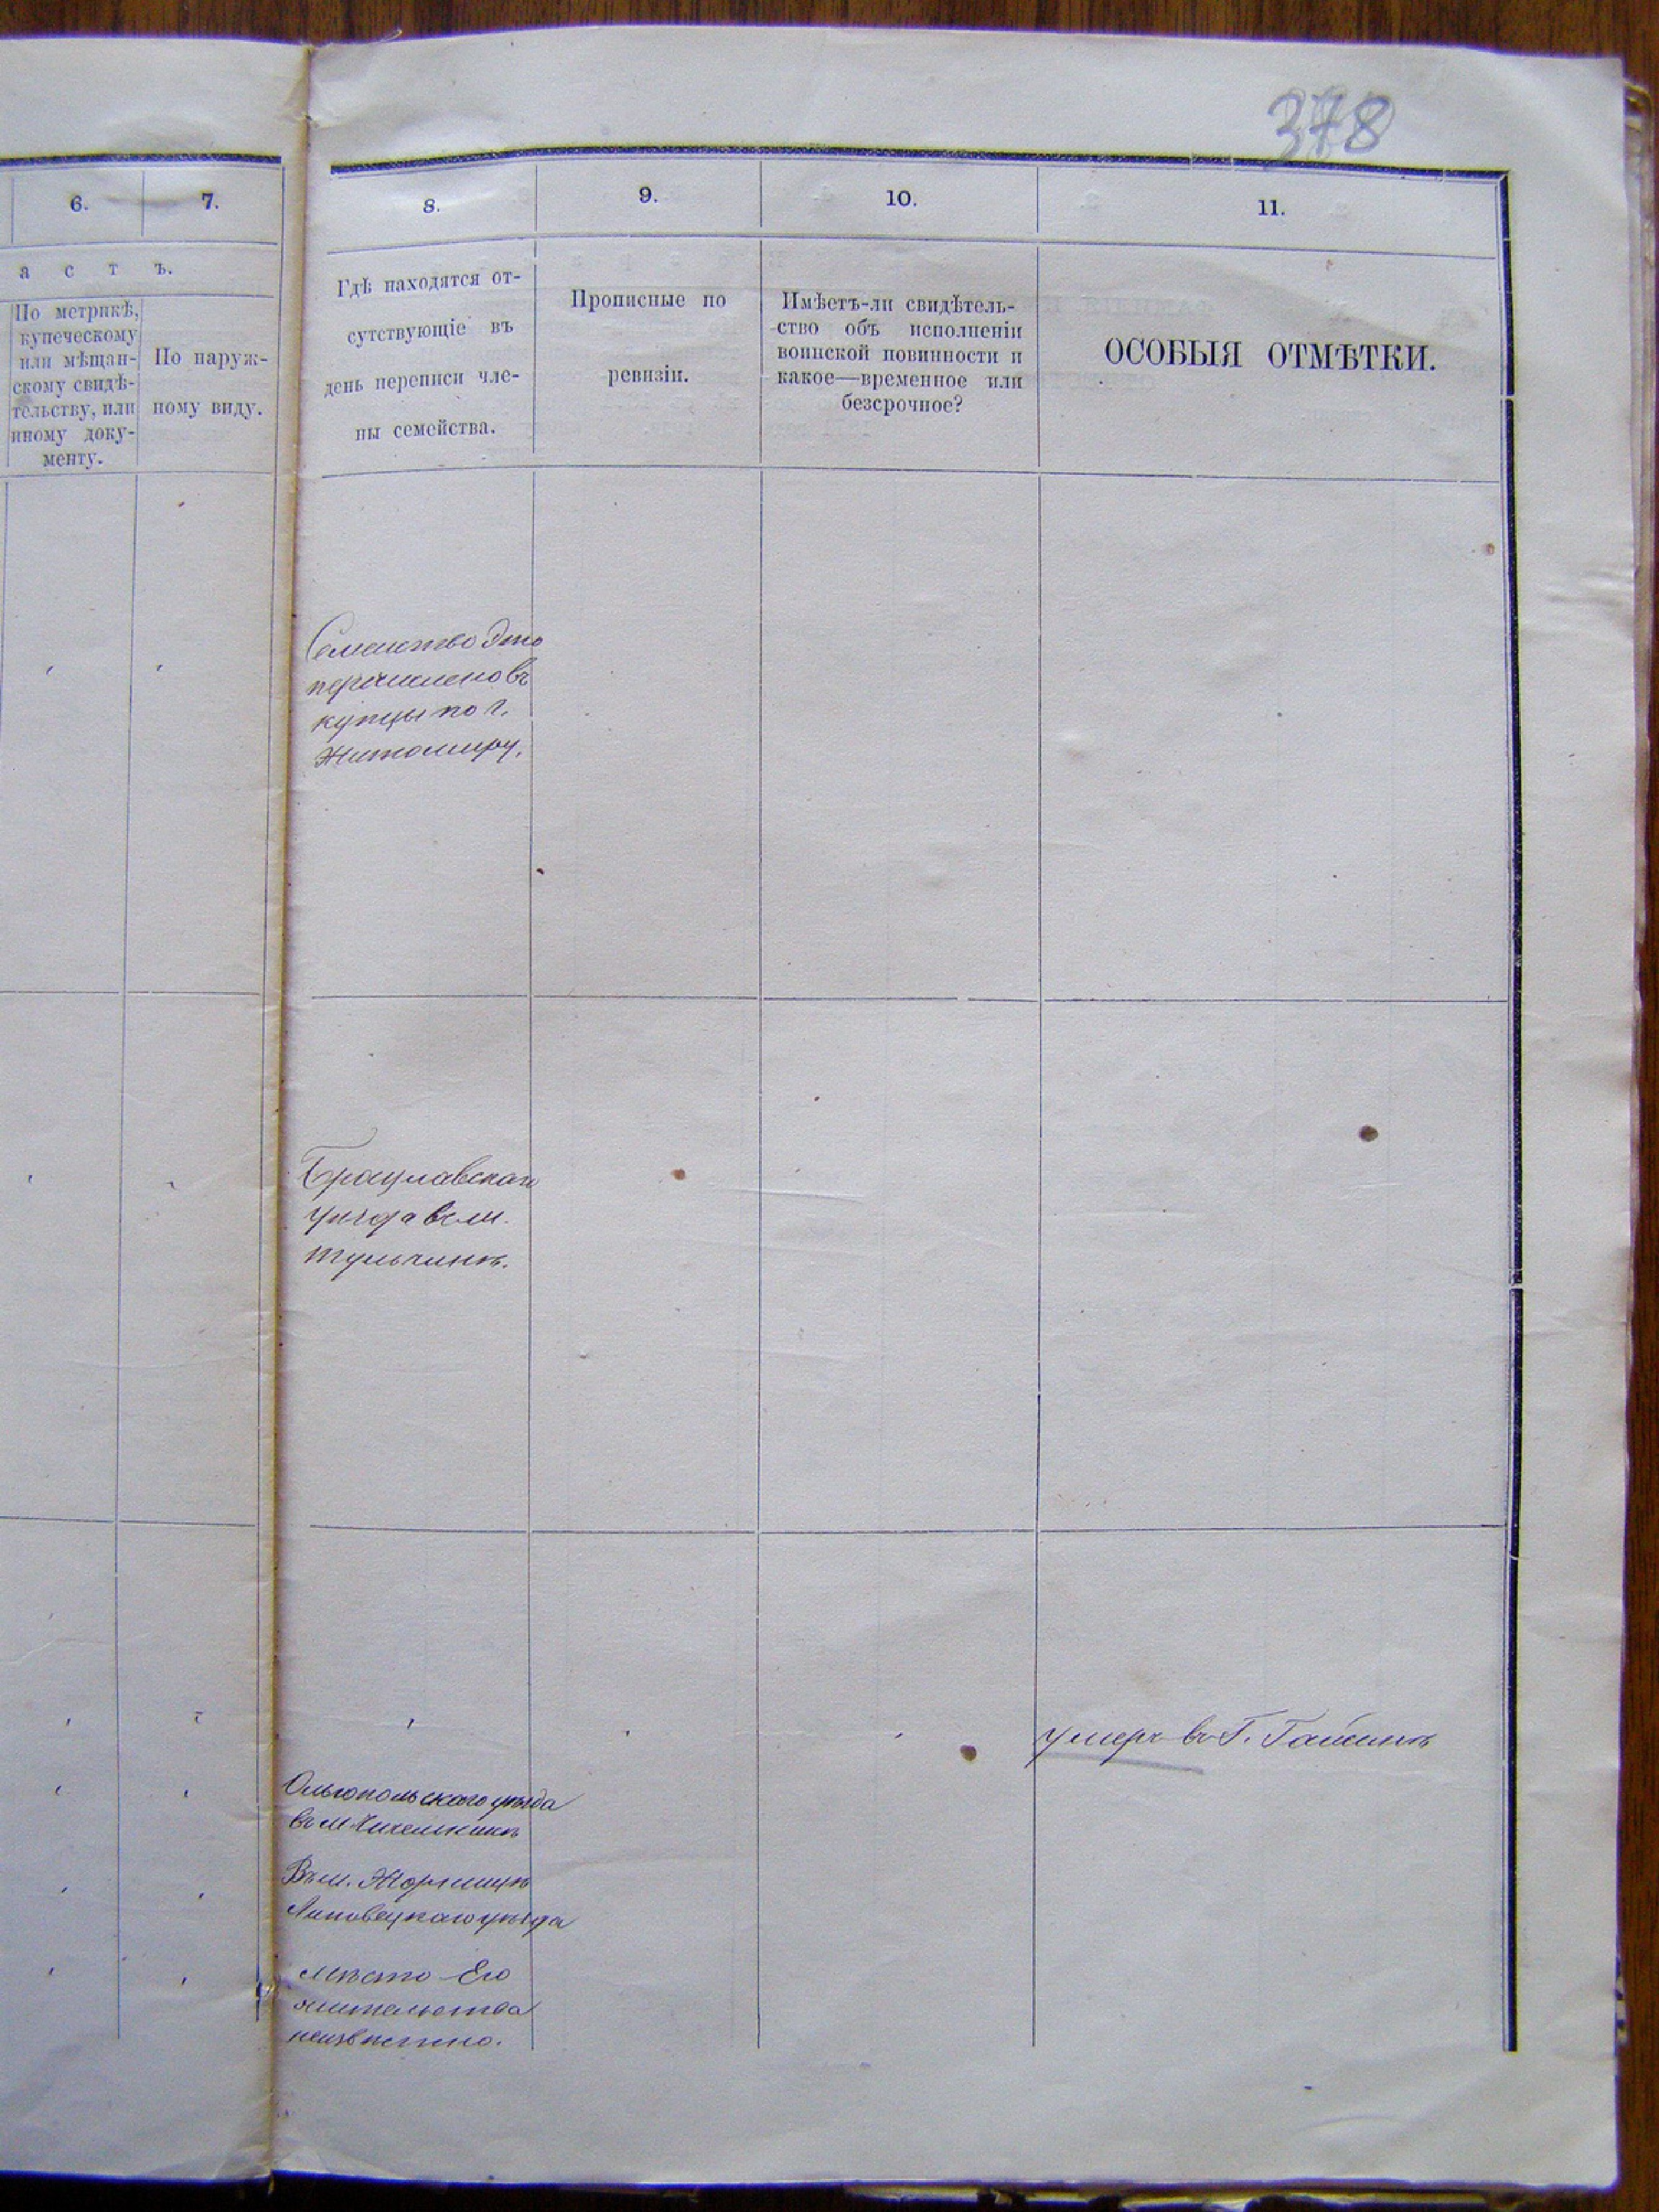 378
6.
7.
8.
9.
10.
11.
а с т ъ.
По метрикѣ,
купеческому
или мѣщан-
скому свидѣ-
тельству, или
иному доку-
менту.
По наруж-
ному виду.
Гдѣ находятся от-
сутствующіе въ
день переписи чле-
ны семейства.
Прописные по
ревизіи.
Имѣетъ-ли свидѣтель-
ство объ исполненіи
воинской повинности и
какое—временное или
безсрочное?
ОСОБЫЯ ОТМѢТКИ.
Семейство Это
перечислено въ
купцы по г.
Житомиру.
Брацлавскаго
уѣзда въ м.
Тульчинѣ.
умеръ въ Г. Гайсинѣ
Ольгопольскаго уѣзда
въ м. Чичельникѣ
Въ м. Жорнищѣ
Липовецкаго уѣзда
Мѣсто Его
жительства
неизвѣстно.